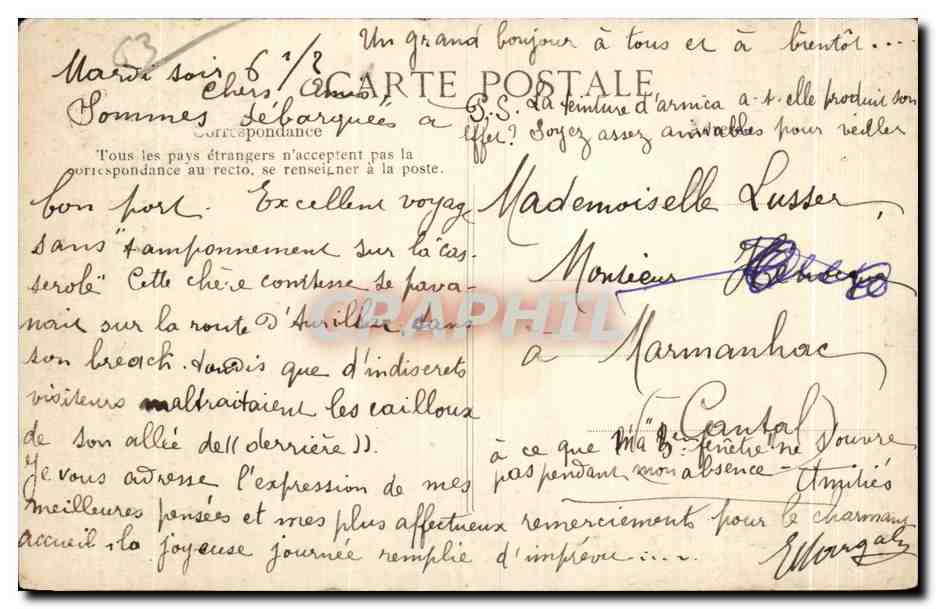 63
Un grand bonjour à tous et à bientôt....
Mardi soir 6 1/2
CARTE POSTALE
Chers Amis
P.S. La teinture d'arnica a-t-elle produit son
Sommes débarquées à
effet? Soyez assez aimables pour veiller
Correspondance
Tous les pays étrangers n'acceptent pas la
correspondance au recto, se renseigner à la poste.
bon port. Excellent voyage
sans "tamponnement sur la cas-
serole" Cette chère comtesse se pava-
nait sur la route d'Aurillac, dans
son break, tandis que d'indiscrets
visiteurs maltraitaient les cailloux
de son allée de ((derrière)).
Je vous adresse l'expression de mes
meilleures pensées et mes plus affectueux remerciements pour le charmant
accueil, la joyeuse journée remplie d'imprévu.....
Mademoiselle Lusser,
Monsieur
à Marmanhac
(Cantal)
à ce que "ma fenêtre" ne s'ouvre
pas pendant mon absence - Amitiés
CPAPHIL